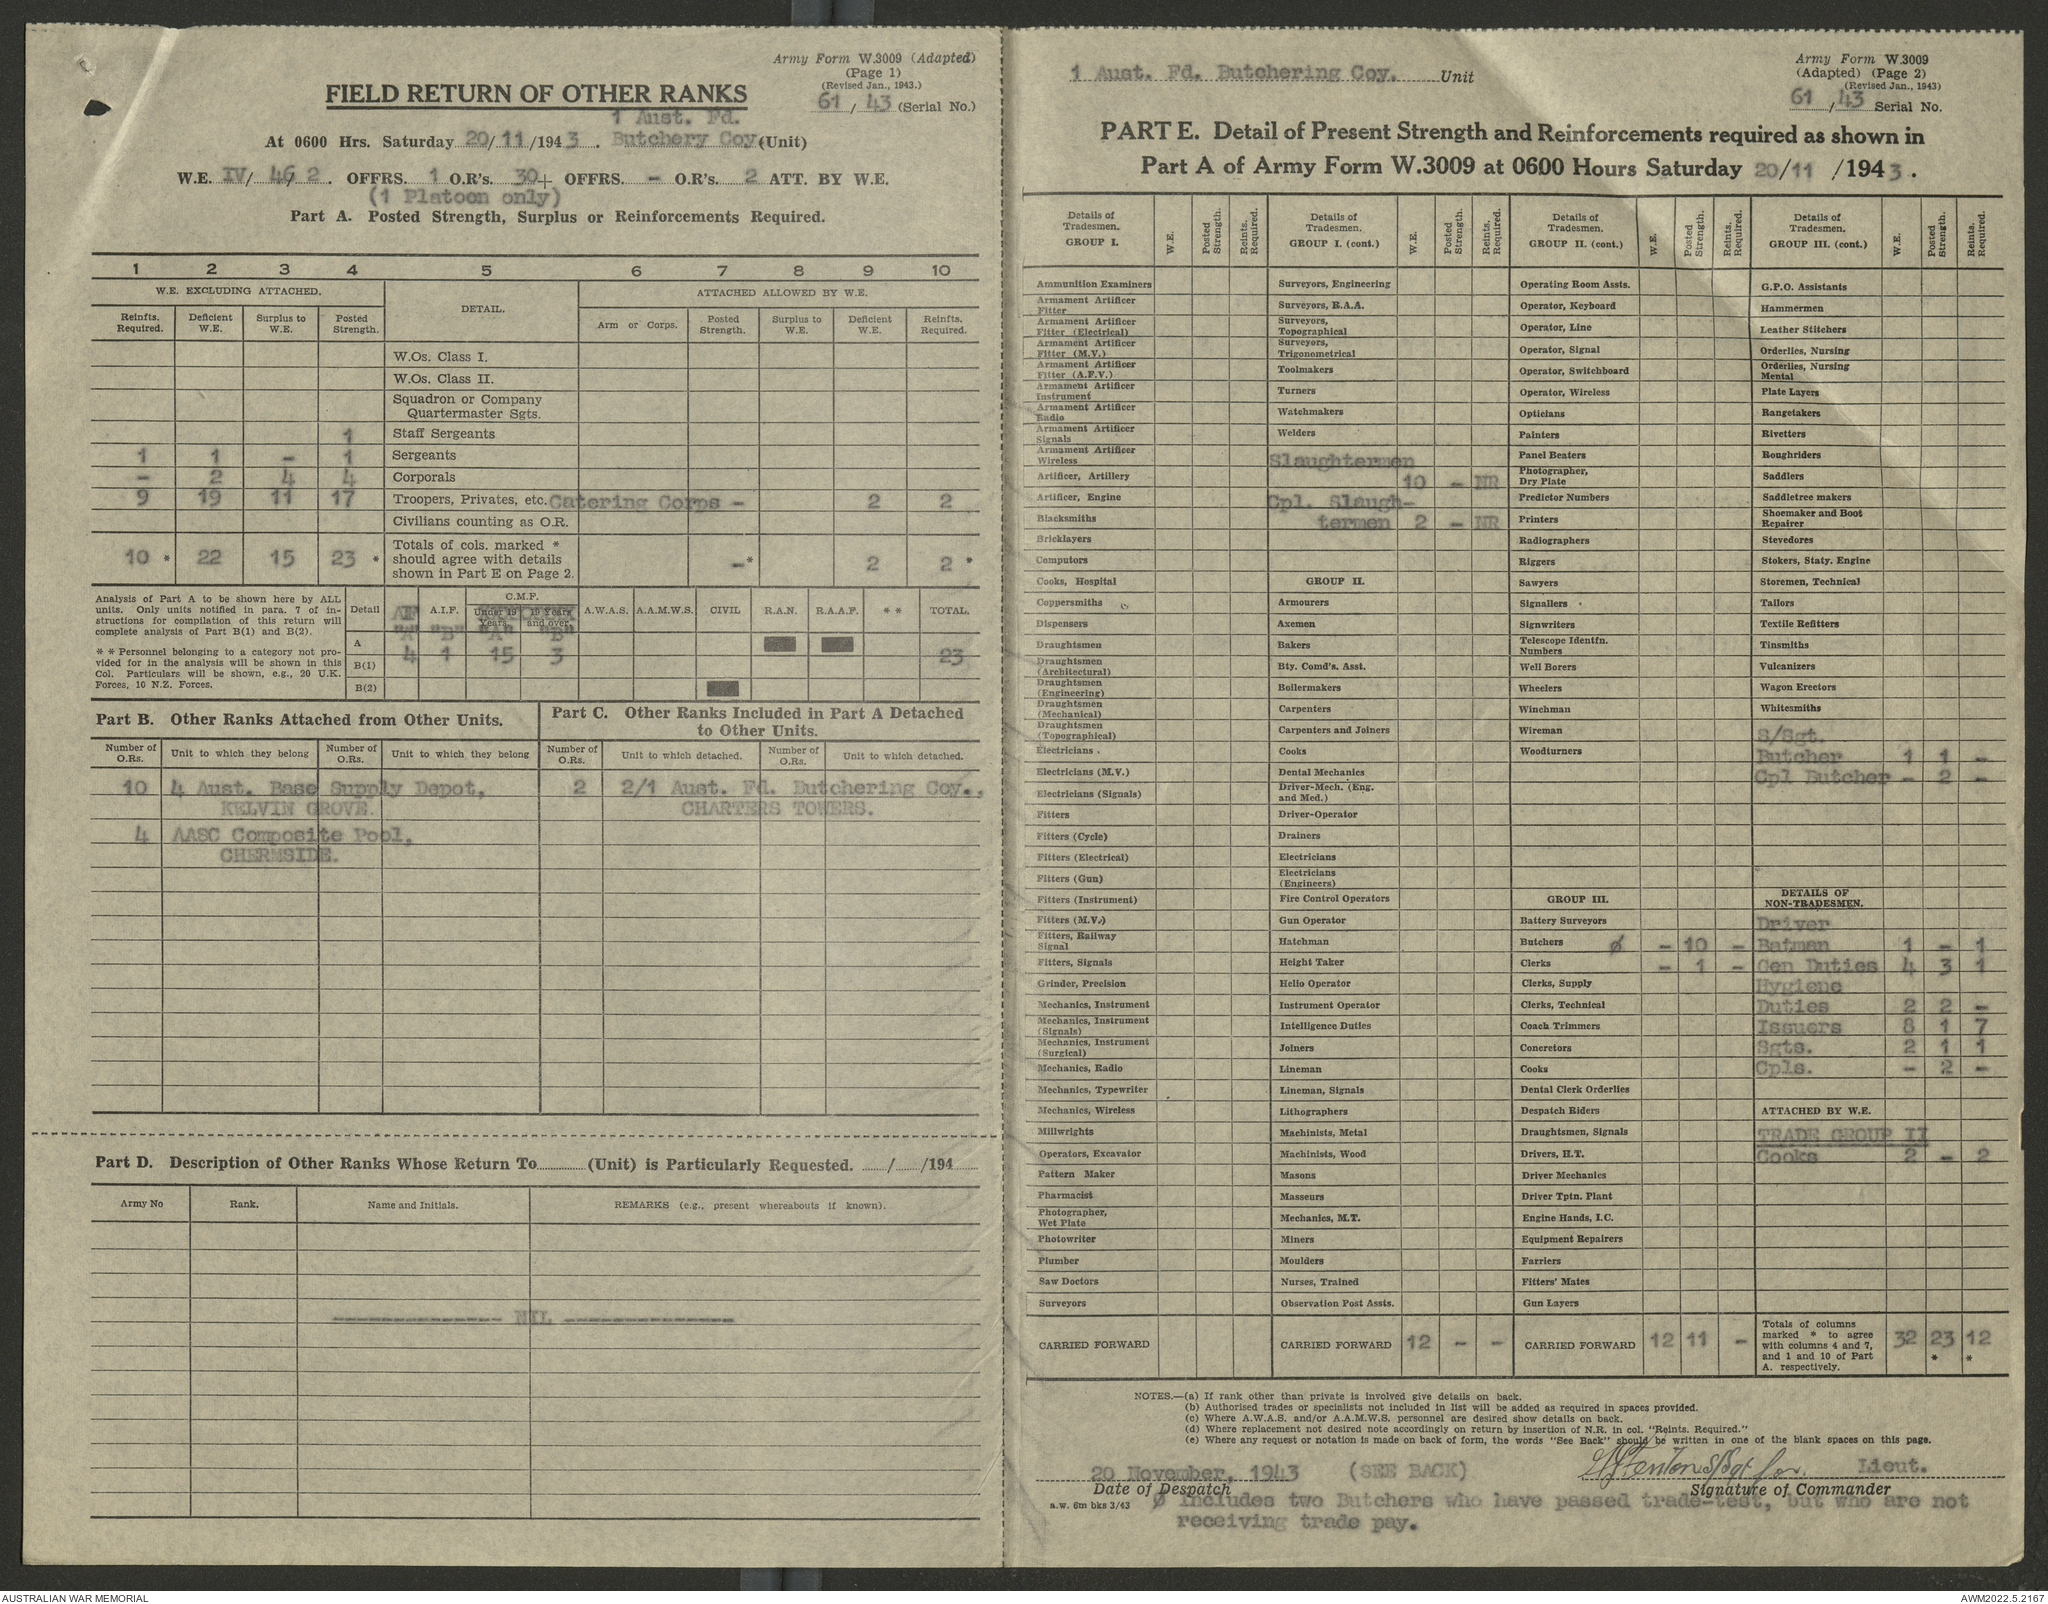 Army Form W.3009 (Adapted)
(Page 1)
(Revised Jan., 1943.)
61 / 43 (Serial No.)
FIELD RETURN OF OTHER RANKS
1 Aust. Fd.
At 0600 Hrs. Saturday 20/11/1943. Butchery Coy (Unit)
W.E. IV/ 46 2. OFFRS. 1 O.R's. 30+ OFFRS. - O.R's. 2 ATT. BY W.E.
(1 Platoon only)
Part A. Posted Strength, Surplus or Reinforcements Required.
1 2 3 4 5 6 7 8 9 10
W.E. EXCLUDING ATTACHED. DETAIL. ATTACHED ALLOWED BY W.E.
Reinfts. Required. Deficient W.E. Surplus to W.E. Posted Strength. Arm or Corps. Posted Strength. Surplus to W.E. Deficient W.E. Reinfts. Required.
W.Os. Class I.
W.Os. Class II.
Squadron or Company
Quartermaster Sgts.
1 Staff Sergeants
1 1 - 1 Sergeants
- 2 4 4 Corporals
9 19 11 17 Troopers, Privates, etc. Catering Corps - 2 2
Civilians counting as O.R.
10 * 22 15 23 * Totals of cols. marked * should agree with details shown in Part E on Page 2. -* 2 2 *
Analysis of Part A to be shown here by ALL
units. Only units notified in para. 7 of in-
structions for compilation of this return will
complete analysis of Part B(1) and B(2).
* * Personnel belonging to a category not pro-
vided for in the analysis will be shown in this
Col. Particulars will be shown, e.g., 20 U.K.
Forces, 10 N.Z. Forces.
Detail A.I.F. C.M.F. Under 19 Years. 19 Years and over. A.W.A.S. A.A.M.W.S. CIVIL R.A.N. R.A.A.F. * * TOTAL.
"A" "B" "A" "B"
A 4 1 15 3 23
B(1)
B(2)
Part B. Other Ranks Attached from Other Units.
Part C. Other Ranks Included in Part A Detached
to Other Units.
Number of O.Rs. Unit to which they belong Number of O.Rs. Unit to which they belong Number of O.Rs. Unit to which detached. Number of O.Rs. Unit to which detached.
10 4 Aust. Base Supply Depot, 2 2/1 Aust. Fd. Butchering Coy.,
KELVIN GROVE. CHARTERS TOWERS.
4 AASC Composite Pool,
CHERMSIDE.
Part D. Description of Other Ranks Whose Return To............(Unit) is Particularly Requested. ....../....../194
Army No Rank. Name and Initials. REMARKS (e.g., present whereabouts if known).
---------------- NIL ----------------
1 Aust. Fd. Butchering Coy. Unit
Army Form W.3009
(Adapted) (Page 2)
(Revised Jan., 1943)
61 / 43 Serial No.
PART E. Detail of Present Strength and Reinforcements required as shown in
Part A of Army Form W.3009 at 0600 Hours Saturday 20/11 /1943.
Details of Tradesmen. GROUP I. W.E. Posted Strength. Reints. Required.
Ammunition Examiners
Armament Artificer Fitter
Armament Artificer Fitter (Electrical)
Armament Artificer Fitter (M.V.)
Armament Artificer Fitter (A.F.V.)
Armament Artificer Instrument
Armament Artificer Radio
Armament Artificer Signals
Armament Artificer Wireless
Artificer, Artillery
Artificer, Engine
Blacksmiths
Bricklayers
Computors
Cooks, Hospital
Coppersmiths
Dispensers
Draughtsmen
Draughtsmen (Architectural)
Draughtsmen (Engineering)
Draughtsmen (Mechanical)
Draughtsmen (Topographical)
Electricians
Electricians (M.V.)
Electricians (Signals)
Fitters
Fitters (Cycle)
Fitters (Electrical)
Fitters (Gun)
Fitters (Instrument)
Fitters (M.V.)
Fitters, Railway Signal
Fitters, Signals
Grinder, Precision
Mechanics, Instrument
Mechanics, Instrument (Signals)
Mechanics, Instrument (Surgical)
Mechanics, Radio
Mechanics, Typewriter
Mechanics, Wireless
Millwrights
Operators, Excavator
Pattern Maker
Pharmacist
Photographer, Wet Plate
Photowriter
Plumber
Saw Doctors
Surveyors
CARRIED FORWARD
Details of Tradesmen. GROUP I. (cont.) W.E. Posted Strength. Reints. Required.
Surveyors, Engineering
Surveyors, R.A.A.
Surveyors, Topographical
Surveyors, Trigonometrical
Toolmakers
Turners
Watchmakers
Welders
Slaughtermen
10 - NR
Cpl. Slaugh-
termen 2 - NR
GROUP II.
Armourers
Axemen
Bakers
Bty. Comd's. Asst.
Boilermakers
Carpenters
Carpenters and Joiners
Cooks
Dental Mechanics
Driver-Mech. (Eng. and Med.)
Driver-Operator
Drainers
Electricians
Electricians (Engineers)
Fire Control Operators
Gun Operator
Hatchman
Height Taker
Helio Operator
Instrument Operator
Intelligence Duties
Joiners
Lineman
Lineman, Signals
Lithographers
Machinists, Metal
Machinists, Wood
Masons
Masseurs
Mechanics, M.T.
Miners
Moulders
Nurses, Trained
Observation Post Assts.
CARRIED FORWARD 12 - -
Details of Tradesmen. GROUP II. (cont.) W.E. Posted Strength. Reints. Required.
Operating Room Assts.
Operator, Keyboard
Operator, Line
Operator, Signal
Operator, Switchboard
Operator, Wireless
Opticians
Painters
Panel Beaters
Photographer, Dry Plate
Predictor Numbers
Printers
Radiographers
Riggers
Sawyers
Signallers
Signwriters
Telescope Identfn. Numbers
Well Borers
Wheelers
Winchman
Wireman
Woodturners
GROUP III.
Battery Surveyors
Butchers ø - 10 -
Clerks - 1 -
Clerks, Supply
Clerks, Technical
Coach Trimmers
Concretors
Cooks
Dental Clerk Orderlies
Despatch Riders
Draughtsmen, Signals
Drivers, H.T.
Driver Mechanics
Driver Tptn. Plant
Engine Hands, I.C.
Equipment Repairers
Farriers
Fitters' Mates
Gun Layers
CARRIED FORWARD 12 11 -
Details of Tradesmen. GROUP III. (cont.) W.E. Posted Strength. Reints. Required.
G.P.O. Assistants
Hammermen
Leather Stitchers
Orderlies, Nursing
Orderlies, Nursing Mental
Plate Layers
Rangetakers
Rivetters
Roughriders
Saddlers
Saddletree makers
Shoemaker and Boot Repairer
Stevedores
Stokers, Staty. Engine
Storemen, Technical
Tailors
Textile Refitters
Tinsmiths
Vulcanizers
Wagon Erectors
Whitesmiths
S/Sgt.
Butcher 1 1 -
Cpl Butcher - 2 -
DETAILS OF NON-TRADESMEN.
Driver
Batman 1 - 1
Gen Duties 4 3 1
Hygiene
Duties 2 2 -
Issuers 8 1 7
Sgts. 2 1 1
Cpls. - 2 -
ATTACHED BY W.E.
TRADE GROUP II
Cooks 2 - 2
Totals of columns marked * to agree with columns 4 and 7, and 1 and 10 of Part A. respectively. 32 23 * 12 *
NOTES.—(a) If rank other than private is involved give details on back.
(b) Authorised trades or specialists not included in list will be added as required in spaces provided.
(c) Where A.W.A.S. and/or A.A.M.W.S. personnel are desired show details on back.
(d) Where replacement not desired note accordingly on return by insertion of N.R. in col. "Reints. Required."
(e) Where any request or notation is made on back of form, the words "See Back" should be written in one of the blank spaces on this page.
20 November, 1943 (SEE BACK) Fenton S/Sgt for. Lieut.
Date of Despatch Signature of Commander
a.w. 6m bks 3/43
ø Includes two Butchers who have passed trade-test, but who are not
receiving trade pay.
AUSTRALIAN WAR MEMORIAL
AWM2022.5.2167